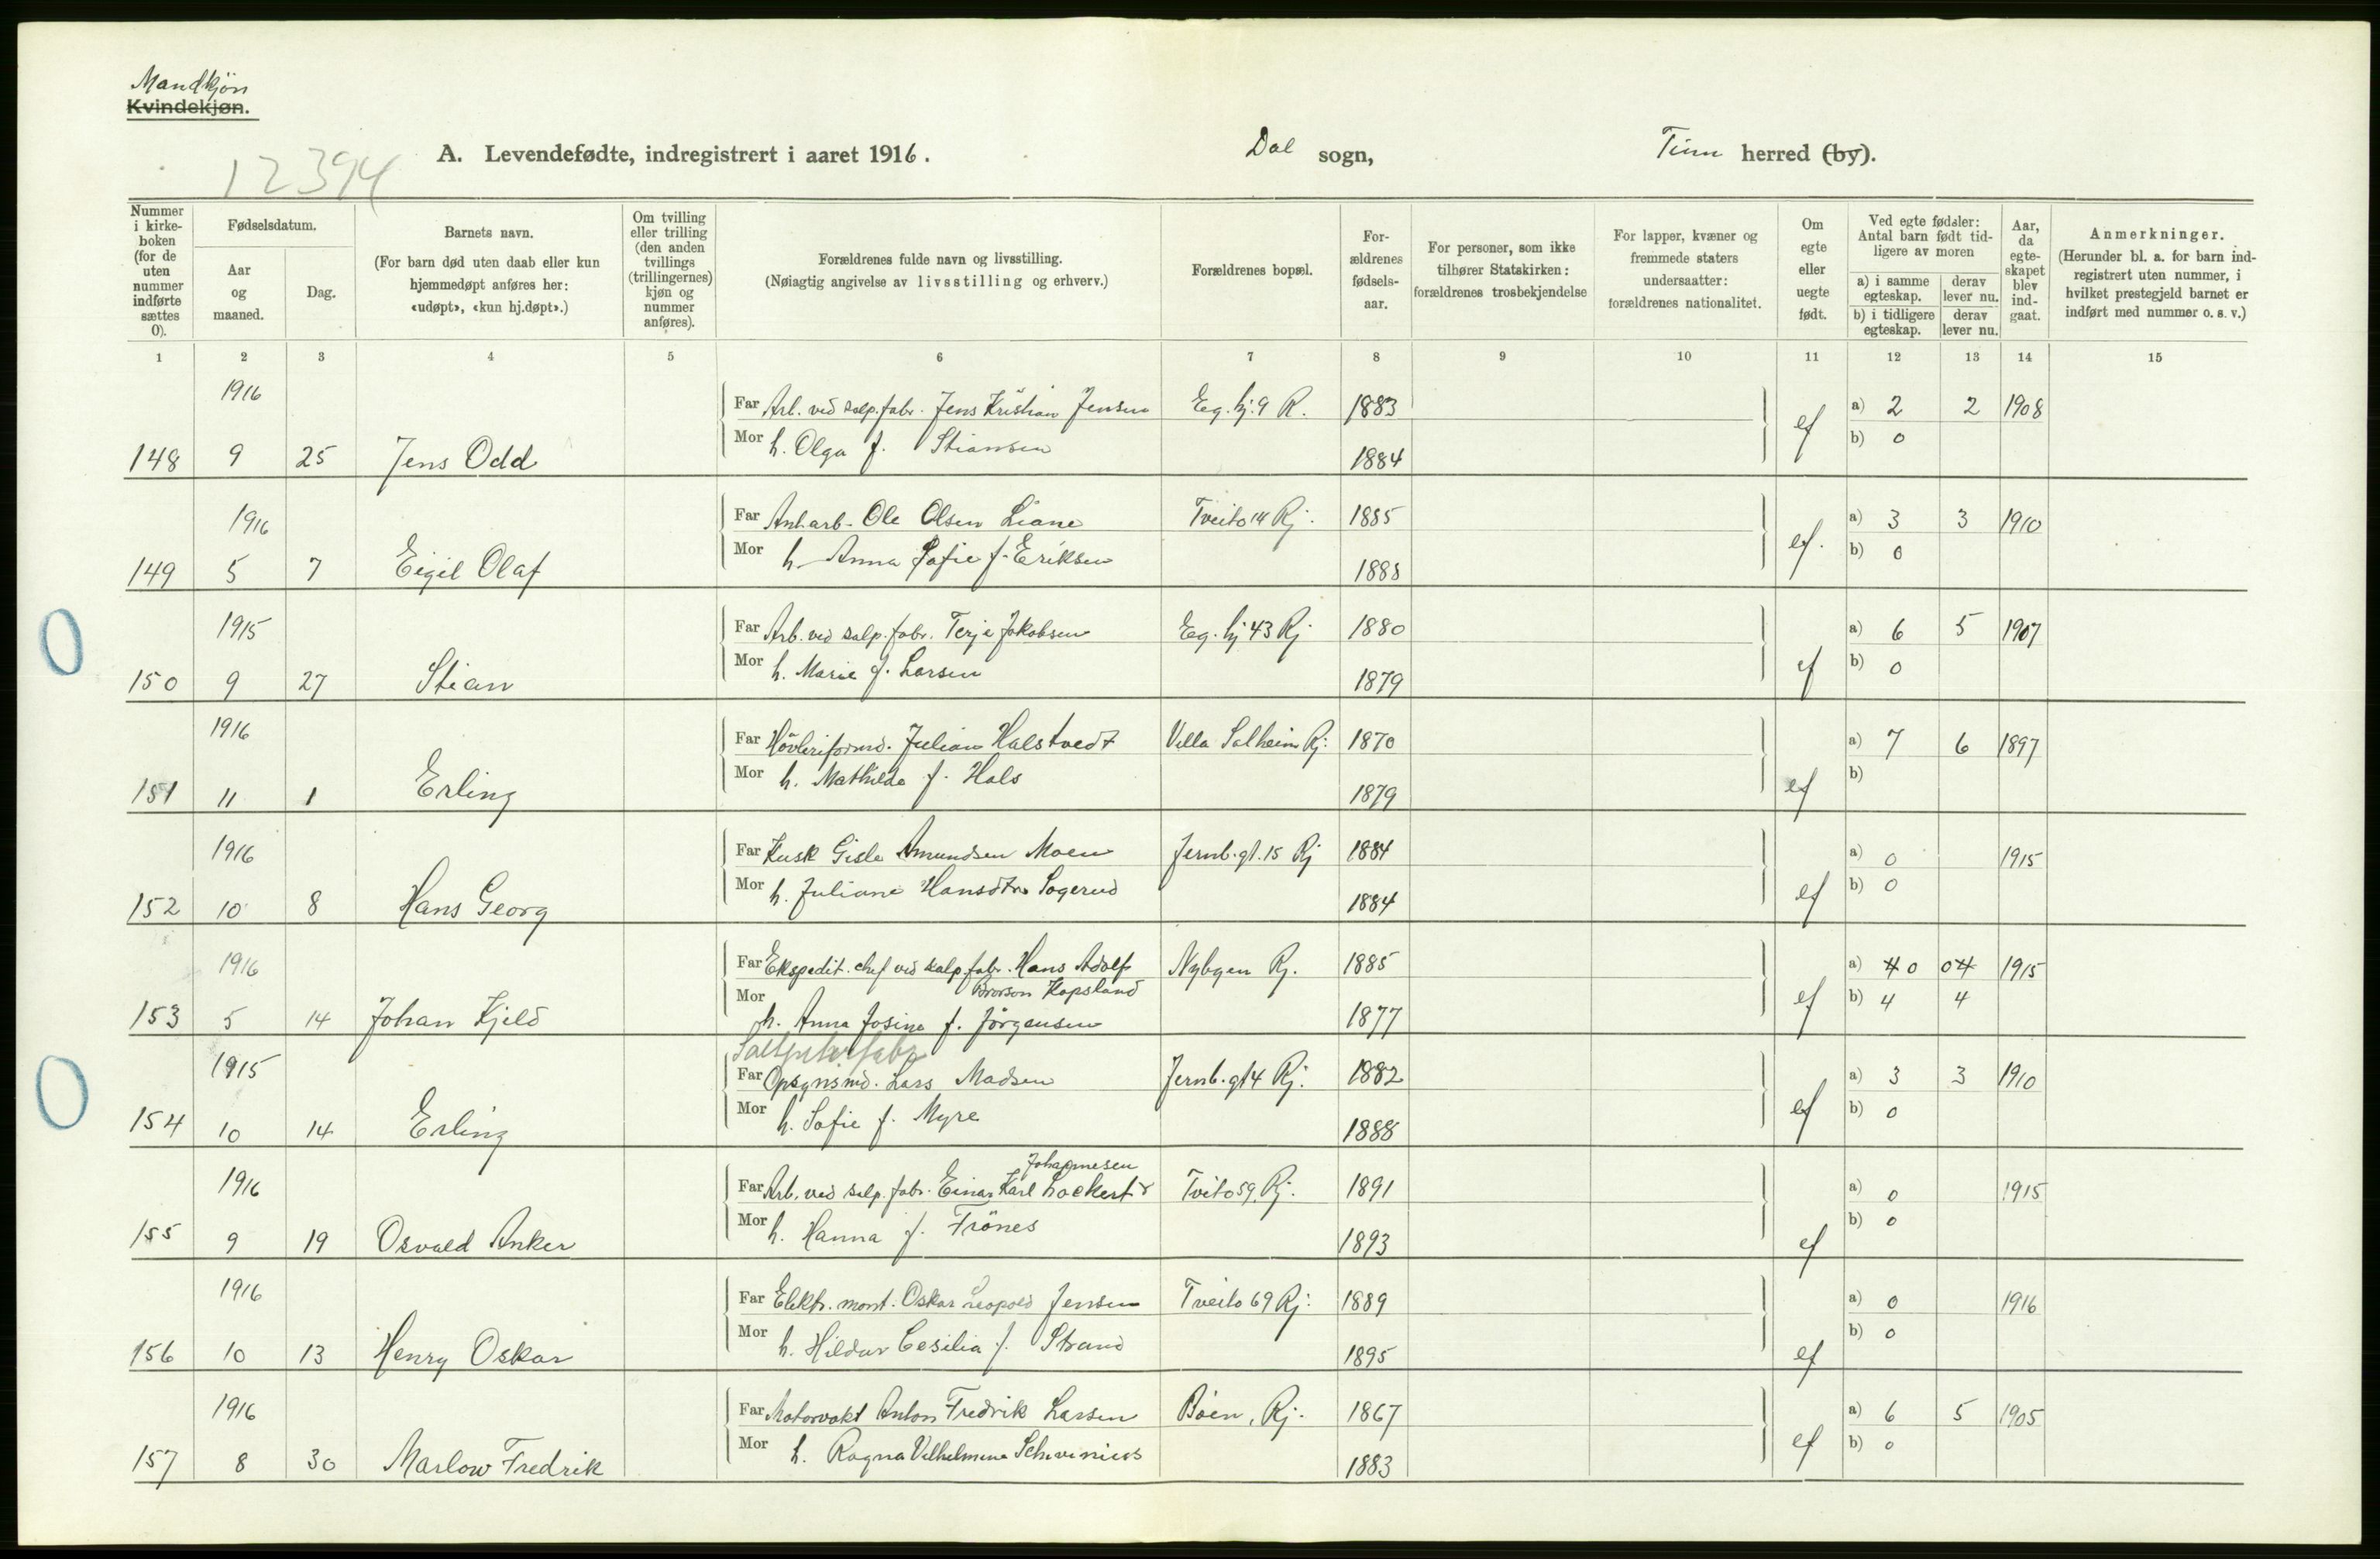 Mandkjøn
Kvindekjøn.
12394
A. Levendefødte, indregistrert i aaret 1916. Dal sogn, Tinn herred (by).
Nummer i kirkeboken (for de uten nummer indførte sættes 0).
Fødselsdatum.
Aar og maaned.
Dag.
Barnets navn.
(For barn død uten daab eller kun hjemmedøpt anføres her: «udøpt», «kun hj.døpt».)
Om tvilling eller trilling (den anden tvillings (trillingernes) kjøn og nummer anføres).
Forældrenes fulde navn og livsstilling.
(Nøiagtig angivelse av livsstilling og erhverv.)
Forældrenes bopæl.
Forældrenes fødselsaar.
For personer, som ikke tilhører Statskirken: forældrenes trosbekjendelse
For lapper, kvæner og fremmede staters undersaatter: forældrenes nationalitet.
Om egte eller uegte født.
Ved egte fødsler: Antal barn født tidligere av moren
a) i samme egteskap. derav lever nu.
b) i tidligere egteskap. derav lever nu.
Aar, da egteskapet blev indgaat.
Anmerkninger.
(Herunder bl. a. for barn indregistrert uten nummer, i hvilket prestegjeld barnet er indført med nummer o. s. v.)
1 2 3 4 5 6 7 8 9 10 11 12 13 14 15
1916 Far Arb. ved salp.fabr. Jens Kristian Jensen Eg. hj. 9 R. 1883 a) 2 2 1908
148 9 25 Jens Odd Mor h. Olga f. Stiansen 1884 ef b) 0
1916 Far Anl.arb. Ole Olsen Liane Tveito 14 Rj. 1885 a) 3 3 1910
149 5 7 Eigil Olaf Mor h. Anna Sofie f. Eriksen 1888 ef. b) 0
0
1915 Far Arb. ved salp.fabr. Terje Jakobsen Eg. hj 43 Rj 1880 a) 6 5 1907
150 9 27 Stian Mor h. Marie f. Larsen 1879 ef b) 0
1916 Far Hövleriformd. Julian Halstvedt Villa Solheim Rj. 1870 a) 7 6 1897
151 11 1 Erling Mor h. Mathilde f. Hals 1879 ef b)
1916 Far Kusk Gisle Amundsen Moen Jernb.gt. 15 Rj 1884 a) 0 1915
152 10 8 Hans Georg Mor h. Juliane Hansdtr Sogerud 1884 ef b) 0
1916 Far Ekspedit. chef ved salp.fabr. Hans Adolf Nybyen Rj. 1885 a) 4 0 0 4 1915
Brorson Kopsland
153 5 14 Johan Kjeld Mor h. Anna Josine f. Jörgensen 1877 ef b) 4 4
0
Saltpeterfabr
1915 Far Opsynsmd. Lars Madsen Jernb.gt 4 Rj. 1882 a) 3 3 1910
154 10 14 Erling Mor h. Sofie f. Myre 1888 ef b) 0
Johannesen
1916 Far Arb. ved salp.fabr. Einar Karl Lockert Tveito 59, Rj. 1891 a) 0 1915
155 9 19 Osvald Anker Mor h. Hanna f. Frönes 1893 ef b) 0
1916 Far Elektr. mont. Oskar Leopold Jensen Tveito 69 Rj. 1889 a) 0 1916
156 10 13 Henry Oskar Mor h. Hildur Cesilia f. Strand 1895 ef b) 0
1916 Far Motorvakt Anton Fredrik Larsen Böen, Rj. 1867 a) 6 5 1905
157 8 30 Marlow Fredrik Mor h. Ragna Vilhelmine 1883 ef b) 0